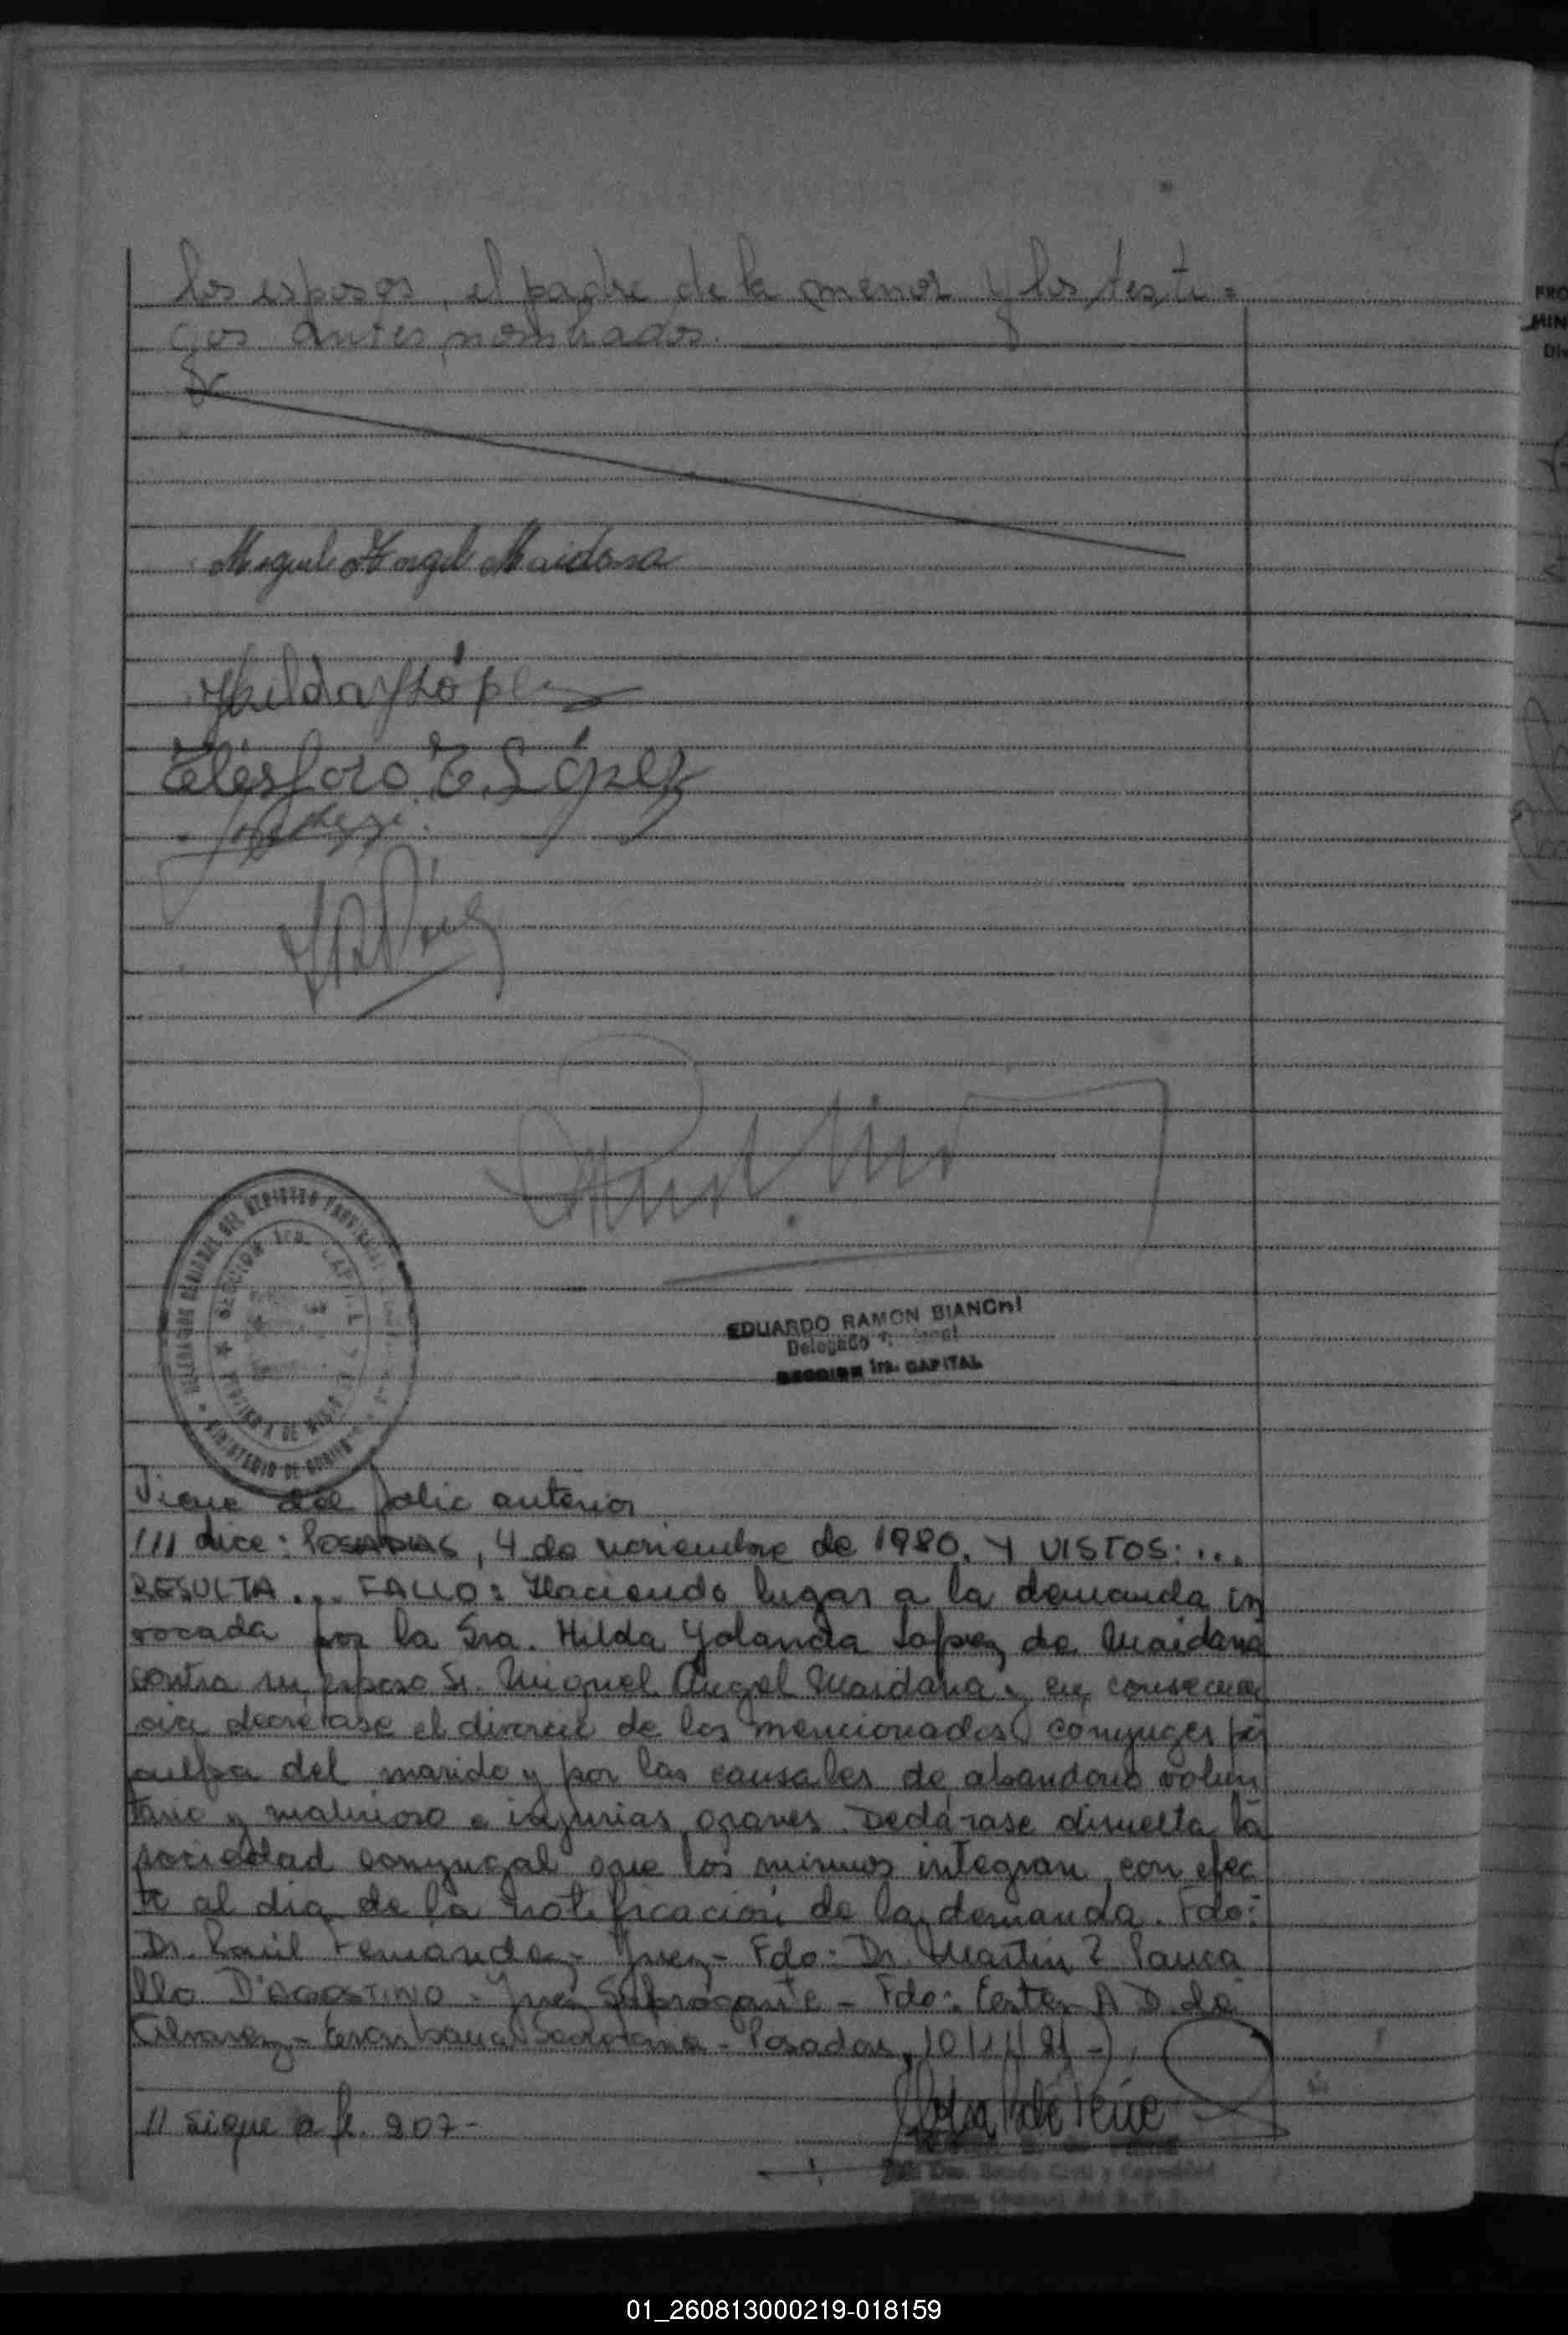 los esposos, el padre de la menor y los testi=
gos antes nombrados.
Miguel Angel Maidana
Hilda Y López
Telésforo T. López
EDUARDO RAMON BIANCHI
Delegado
SECCION 1ra. CAPITAL
SECCION 1ra. CAPITAL
MINISTERIO DE GOBIERNO
Viene del folio anterior
/// dice: POSADAS, 4 de noviembre de 1980. Y VISTOS: ...
RESULTA ... FALLO: Haciendo lugar a la demanda in
vocada por la Sra. Hilda Yolanda Lopez de Maidana
contra su esposo Sr. Miguel Angel Maidana y en consecuen
cia decretase el divorcio de los mencionados conyuges por
culpa del marido y por las causales de abandono volun
tario y malicioso e injurias graves. Declárase disuelta la
sociedad conyugal que los mismos integran con efec
to al dia de la notificación de la demanda. Fdo:
Dr. Raúl Fernandez - Juez - Fdo: Dr. Martin
D'AGOSTINO - Juez Subrogante - Fdo: Ester A D. de
Alvarez - Escribana Secretaria - Posadas, 10/11/81 -
// Sigue a f. 207-
Estado Civil y Capacidad
01_260813000219-018159